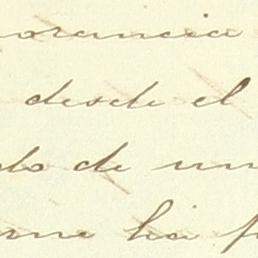 orancia
desde el
do de un
me ha f